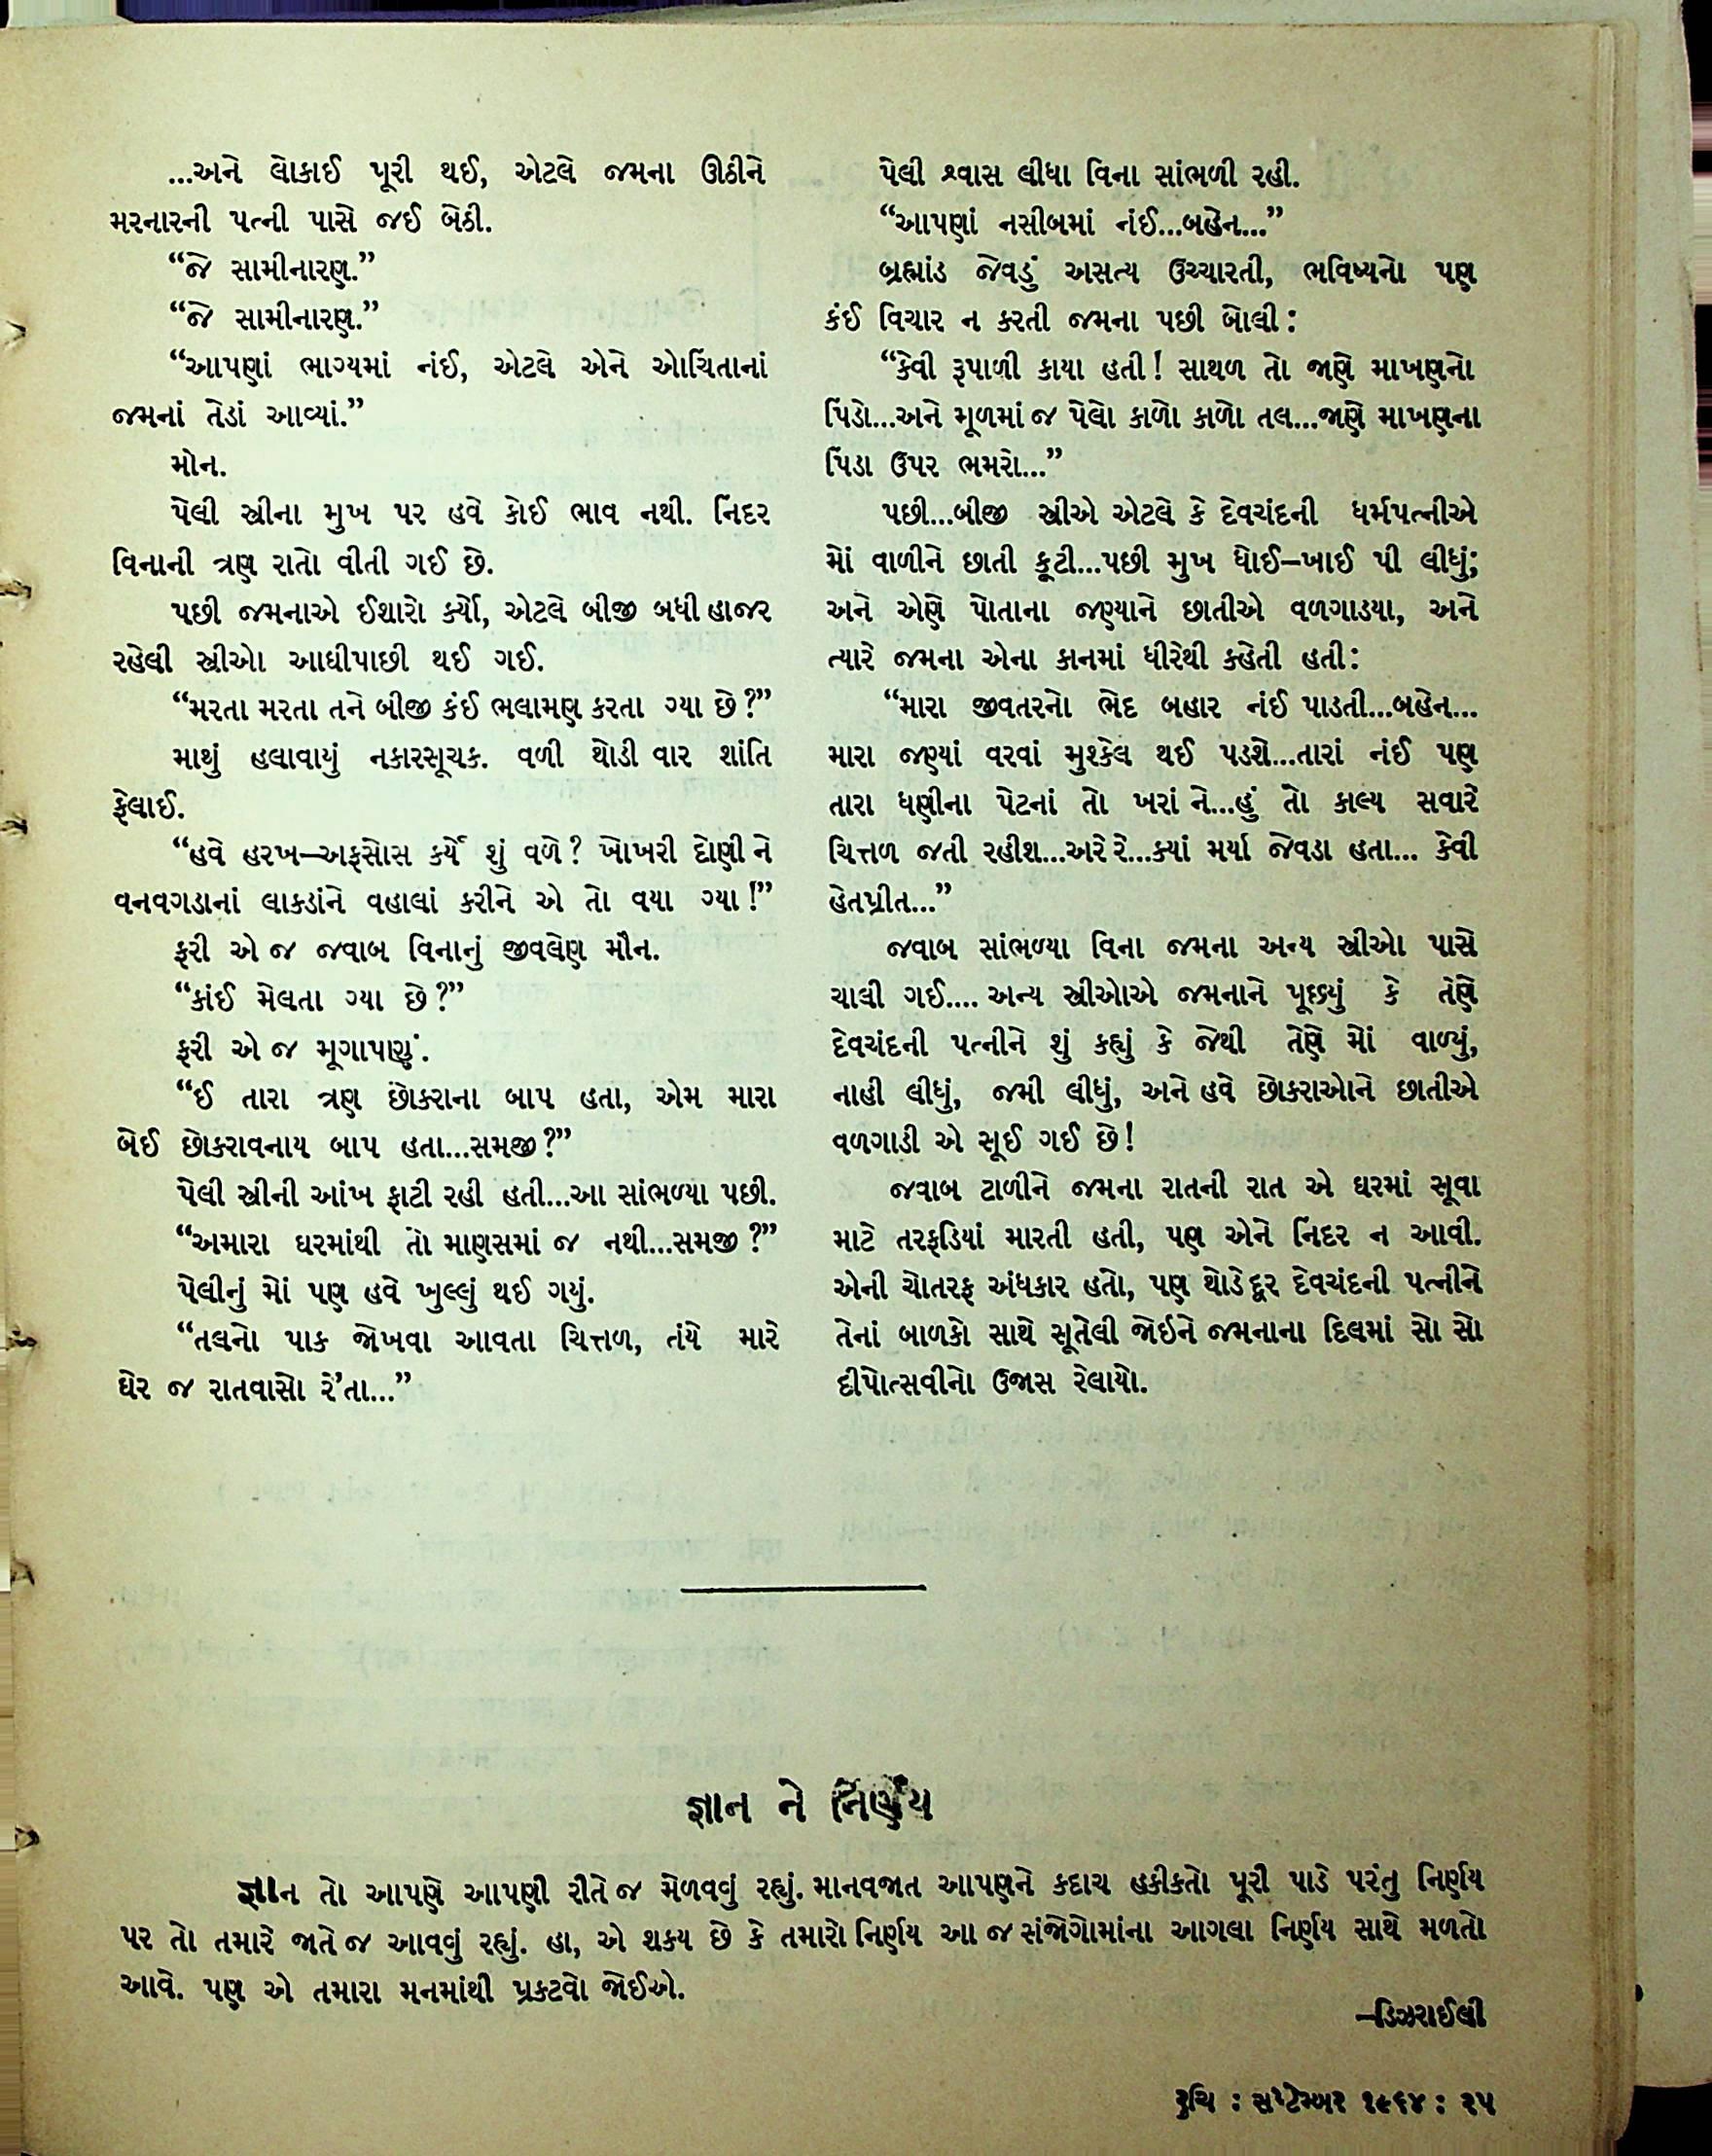 ...અને લોકાઈ પૂરી થઈ, એટલે જમના ઊઠીને
મરનારની પત્ની પાસે જઈ બેઠી.
“જે સામીનારણ.”
“જે સામીનારણ.”
“આપણાં ભાગ્યમાં નંઈ, એટલે એને ઓચિંતાનાં
જમનાં તેડાં આવ્યાં.”
મૌન.
પેલી સ્ત્રીના મુખ પર હવે કોઈ ભાવ નથી. નિંદર
વિનાની ત્રણ રાતો વીતી ગઈ છે.
પછી જમનાએ ઈશારો કર્યો, એટલે બીજી બધી હાજર
રહેલી સ્ત્રીઓ આઘીપાછી થઈ ગઈ.
“મરતા મરતા તને બીજી કંઈ ભલામણ કરતા ગ્યા છે?”
માથું હલાવાયું નકારસૂચક. વળી થોડી વાર શાંતિ
ફેલાઈ.
“હવે હરખ–અફસોસ કર્યે શું વળે? ખોખરી દોણી ને
વનવગડાનાં લાકડાંને વહાલાં કરીને એ તો વયા ગ્યા!”
ફરી એ જ જવાબ વિનાનું જીવલેણ મૌન.
“કાંઈ મેલતા ગ્યા છે?”
ફરી એ જ મૂગાપણું.
“ઈ તારા ત્રણ છોકરાના બાપ હતા, એમ મારા
બેઈ છોકરાવનાય બાપ હતા...સમજી?”
પેલી સ્ત્રીની આંખ ફાટી રહી હતી...આ સાંભળ્યા પછી.
“અમારા ઘરમાંથી તો માણસમાં જ નથી...સમજી?”
પેલીનું મોં પણ હવે ખુલ્લું થઈ ગયું.
“તલનો પાક જોખવા આવતા ચિત્તળ, તંયે મારે
ઘેર જ રાતવાસો રે’તા...”
પેલી શ્વાસ લીધા વિના સાંભળી રહી.
“આપણાં નસીબમાં નંઈ...બહેન...”
બ્રહ્માંડ જેવડું અસત્ય ઉચ્ચારતી, ભવિષ્યનો પણ
કંઈ વિચાર ન કરતી જમના પછી બોલી:
“કેવી રૂપાળી કાયા હતી! સાથળ તો જાણે માખણનો
પિંડો...અને મૂળમાં જ પેલો કાળો કાળો તલ...જાણે માખણના
પિંડા ઉપર ભમરો...”
પછી...બીજી સ્ત્રીએ એટલે કે દેવચંદની ધર્મપત્નીએ
મોં વાળીને છાતી કૂટી...પછી મુખ ધોઈ–ખાઈ પી લીધું;
અને એણે પોતાના જણ્યાને છાતીએ વળગાડયા, અને
ત્યારે જમના એના કાનમાં ધીરેથી કહેતી હતી:
“મારા જીવતરનો ભેદ બહાર નંઈ પાડતી...બહેન...
મારા જણ્યાં વરવાં મુશ્કેલ થઈ પડશે...તારાં નંઈ પણ
તારા ધણીના પેટનાં તો ખરાં ને...હું તો કાલ્ય સવારે
ચિત્તળ જતી રહીશ...અરે રે...ક્યાં મર્યા જેવડા હતા... કેવી
હેતપ્રીત...”
જવાબ સાંભળ્યા વિના જમના અન્ય સ્ત્રીઓ પાસે
ચાલી ગઈ.... અન્ય સ્ત્રીઓએ જમનાને પૂછ્યું કે તેણે
દેવચંદની પત્નીને શું કહ્યું કે જેથી તેણે મોં વાળ્યું,
નાહી લીધું, જમી લીધું, અને હવે છોકરાઓને છાતીએ
વળગાડી એ સૂઈ ગઈ છે!
જવાબ ટાળીને જમના રાતની રાત એ ઘરમાં સૂવા
માટે તરફડિયાં મારતી હતી, પણ એને નિંદર ન આવી.
એની ચોતરફ અંધકાર હતો, પણ થોડે દૂર દેવચંદની પત્નીને
તેનાં બાળકો સાથે સૂતેલી જોઈને જમનાના દિલમાં સો સો
દીપોત્સવીનો ઉજાસ રેલાયો.
જ્ઞાન ને નિર્ણય
જ્ઞાન તો આપણે આપણી રીતે જ મેળવવું રહ્યું. માનવજાત આપણને કદાચ હકીકતો પૂરી પાડે પરંતુ નિર્ણય
પર તો તમારે જાતે જ આવવું રહ્યું. હા, એ શક્ય છે કે તમારો નિર્ણય આ જ સંજોગોમાંના આગલા નિર્ણય સાથે મળતો
આવે. પણ એ તમારા મનમાંથી પ્રકટવો જોઈએ.
–ડિઝરાઈલી
રુચિ : સપ્ટેમ્બર ૧૯૬૪ : ૨૫